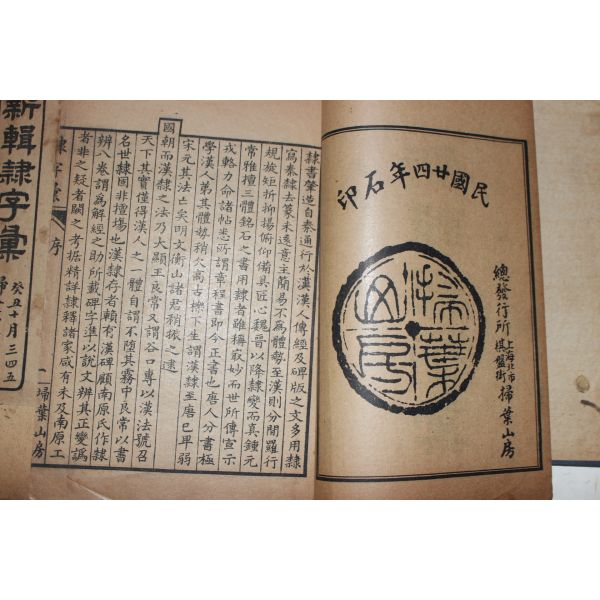 民國廿四年石印
掃葉山房
總發行所 上海北市棋盤街 掃葉山房
隸書肇造自秦通行於漢漢人傳經及碑版之文多用隸
寫秦隸去篆未遠意主簡易不為體勢至漢則分間羅行
規旋矩折抑揚俯仰備具匠心魏晉以降隸變而真鍾元
常雅擅三體銘石之書用隸者雖稱最妙而世所傳宣示
戎輅力命諸帖悉所謂章程書即今正書也唐人分書極
學漢人第其體勢稍欠高古操下生謂漢隸至唐已卑弱
宋元其法亡矣明文衡山諸君稍振之逮
國朝而漢隸之法乃大顯王良常又謂谷口專以漢法號召
天下其實僅得漢人之一體自謂不隨其霧中良常以書
名世隸固非擅場也漢隸存者賴有漢碑顧南原氏作隸
辨八卷謂為解經之助所載碑字準以說文辨其正變譌
者非之疑者闕之考据精詳隸釋諸家咸有未及南原工
隸字彙 序 一 掃葉山房
新輯隸字彙
癸丑十月三四五